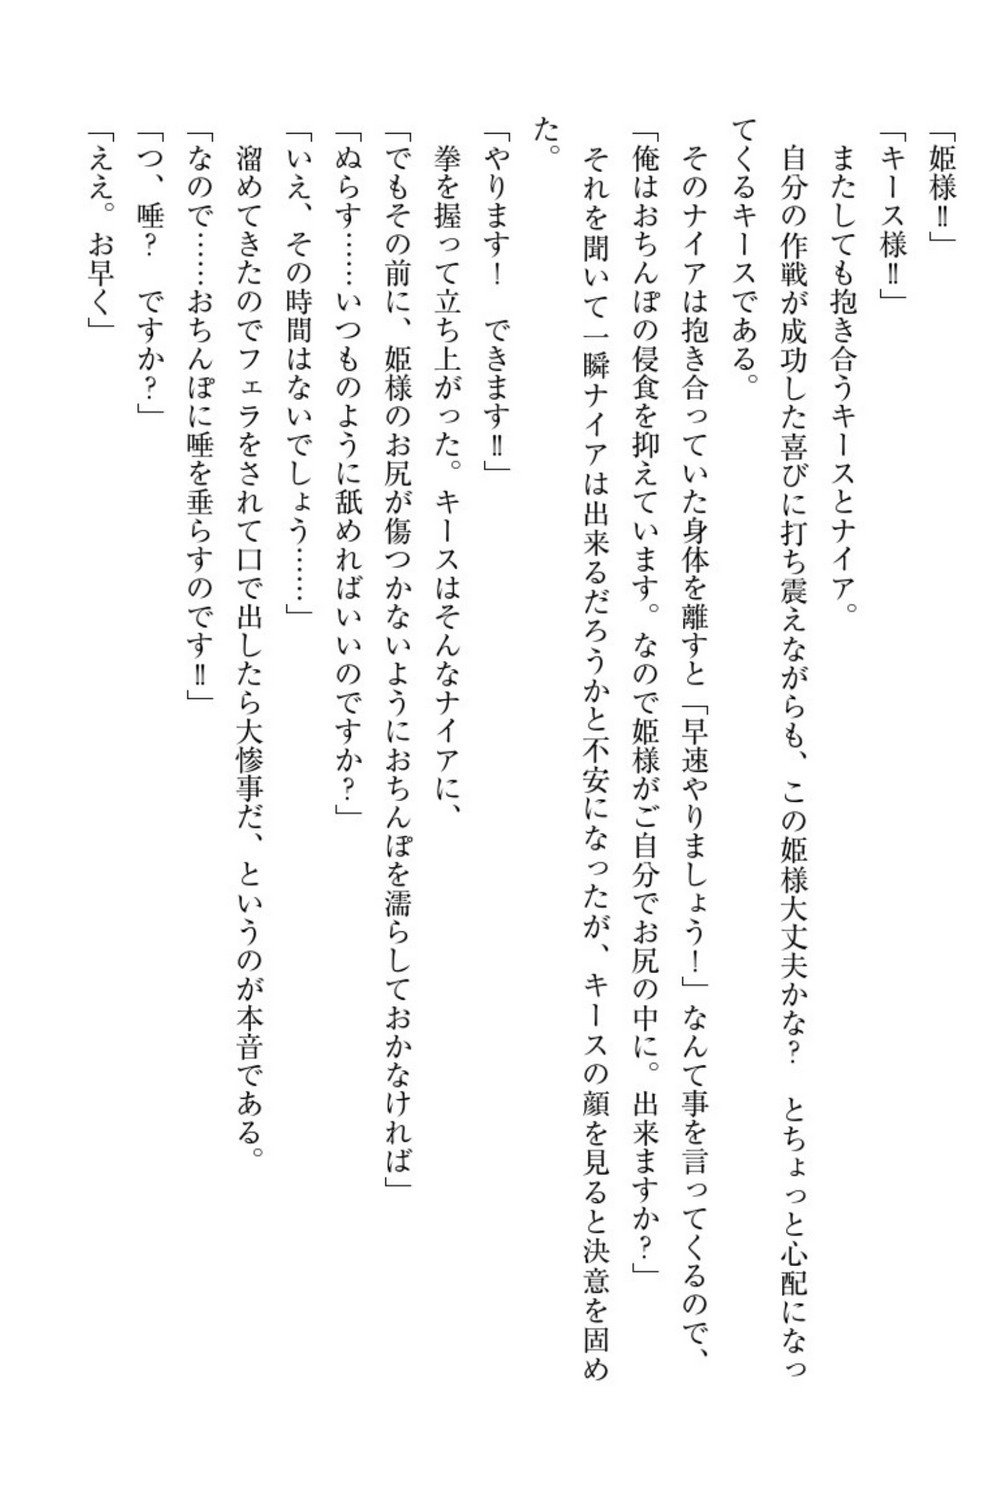 「姫様‼」
「キース様‼」
　またしても抱き合うキースとナイア。
　自分の作戦が成功した喜びに打ち震えながらも、この姫様大丈夫かな？　とちょっと心配になっ
てくるキースである。
　そのナイアは抱き合っていた身体を離すと「早速やりましょう！」なんて事を言ってくるので、
「俺はおちんぽの侵食を抑えています。なので姫様がご自分でお尻の中に。出来ますか？」
　それを聞いて一瞬ナイアは出来るだろうかと不安になったが、キースの顔を見ると決意を固め
た。
「やります！　できます‼」
　拳を握って立ち上がった。キースはそんなナイアに、
「でもその前に、姫様のお尻が傷つかないようにおちんぽを濡らしておかなければ」
「ぬらす……いつものように舐めればいいのですか？」
「いえ、その時間はないでしょう……」
　溜めてきたのでフェラをされて口で出したら大惨事だ、というのが本音である。
「なので……おちんぽに唾を垂らすのです‼」
「つ、唾？　ですか？」
「ええ。お早く」